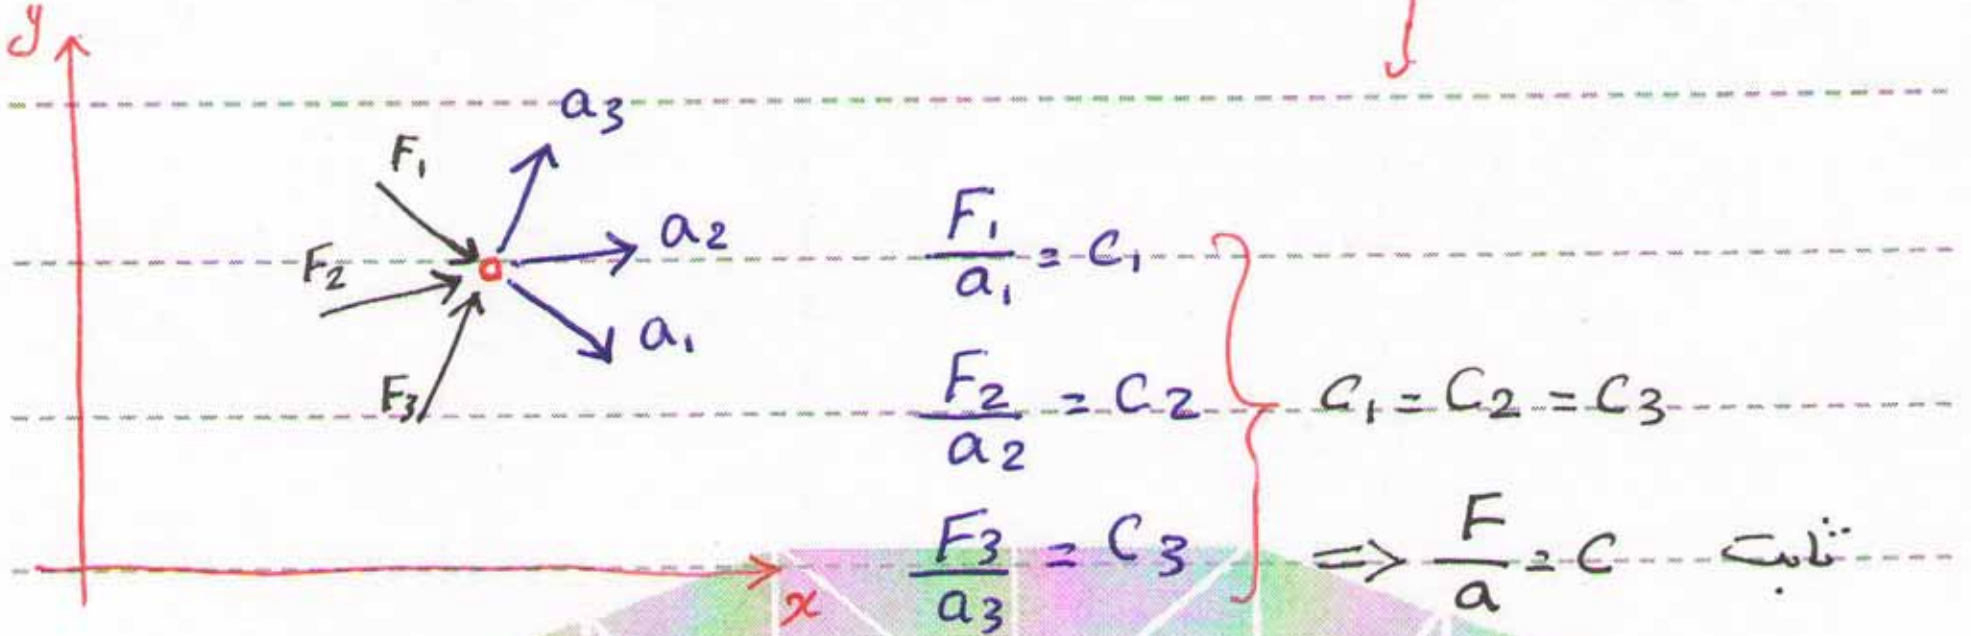 y
a3
F1
a2
F2
a1
F3
x
F1/a1 = C1
F2/a2 = C2
F3/a3 = C3
C1 = C2 = C3
=> F/a = C ثابت